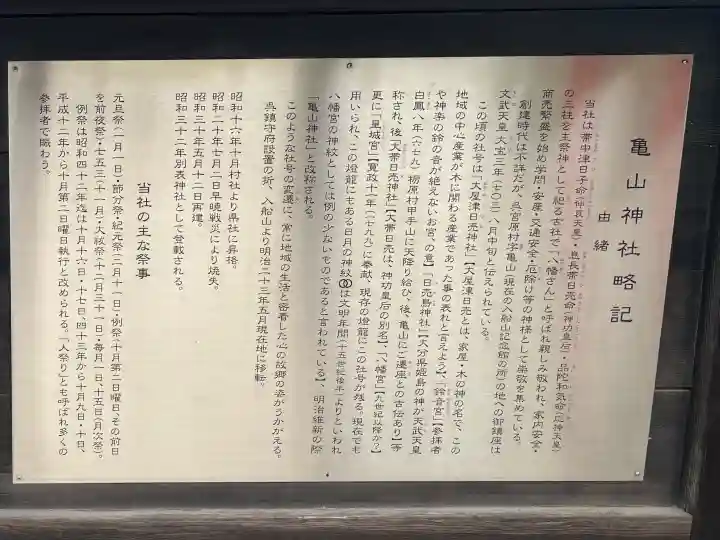 亀山神社略記
由緒
当社は帯中津日子命(仲哀天皇)・息長帯日売命(神功皇后)・品陀和気命(応神天皇)
の三柱を主祭神として祀る古社で、「八幡さん」と呼ばれ親しみ敬われ、家内安全・
商売繁盛を始め学問・安産・交通安全・厄除け等の神様として崇敬を集めている。
創建時代は不詳だが、呉宮原村字亀山(現在の入船山記念館の所)の地への御鎮座は
文武天皇大宝三年(七〇三)八月中旬と伝えられている。
この頃の社号は「大屋津日売神社」【大屋津日売とは、家屋・木の神の名で、この
地域の中心産業が木に関わる産業であった事の表れと言えよう】、「鈴音宮」【参拝者
や神楽の鈴の音が絶えないお宮、の意】「日売島神社」【大分県姫島の神が天武天皇
白鳳八年(六七九)栃原村甲手山に天降り給ひ、後、亀山にご遷座との古伝あり】等
称され、後、「大帯日売神社」【大帯日売は、神功皇后の別名】、「八幡宮」【九世紀以降か?】
更に「皇城宮」【寛政十一年(一七九九)に奉献、現存の燈籠にこの社号が残る。現在でも
用いられ、この燈籠にもある日月の神紋は文明年間(十五世紀後半)よりといわれ
八幡宮の神紋としては例の少ないものであると言われている】、明治維新の際
「亀山神社」と改称される。
このような社号の変遷に、常に地域の生活と密着した心の故郷の姿がうかがえる。
呉鎮守府設置の折、入船山より明治二十三年五月現在地に移転。
昭和十六年十月村社より県社に昇格。
昭和二十年七月二日早暁戦災により焼失。
昭和三十年五月十二日再建。
昭和三十二年別表神社として登載される。
当社の主な祭事
元旦祭(一月一日)・節分祭・紀元祭(二月十一日)・例祭(十月第二日曜日、その前日
を前夜祭・七五三(十一月)・大祓祭(十二月三十一日)・毎月一日、十五日(月次祭)。
例祭は昭和四十二年迄は十月十六日・十七日、四十三年から十月九日・十日、
平成十二年から十月第二日曜日執行と改められる。「人祭り」とも呼ばれ多くの
参拝者で賑わう。